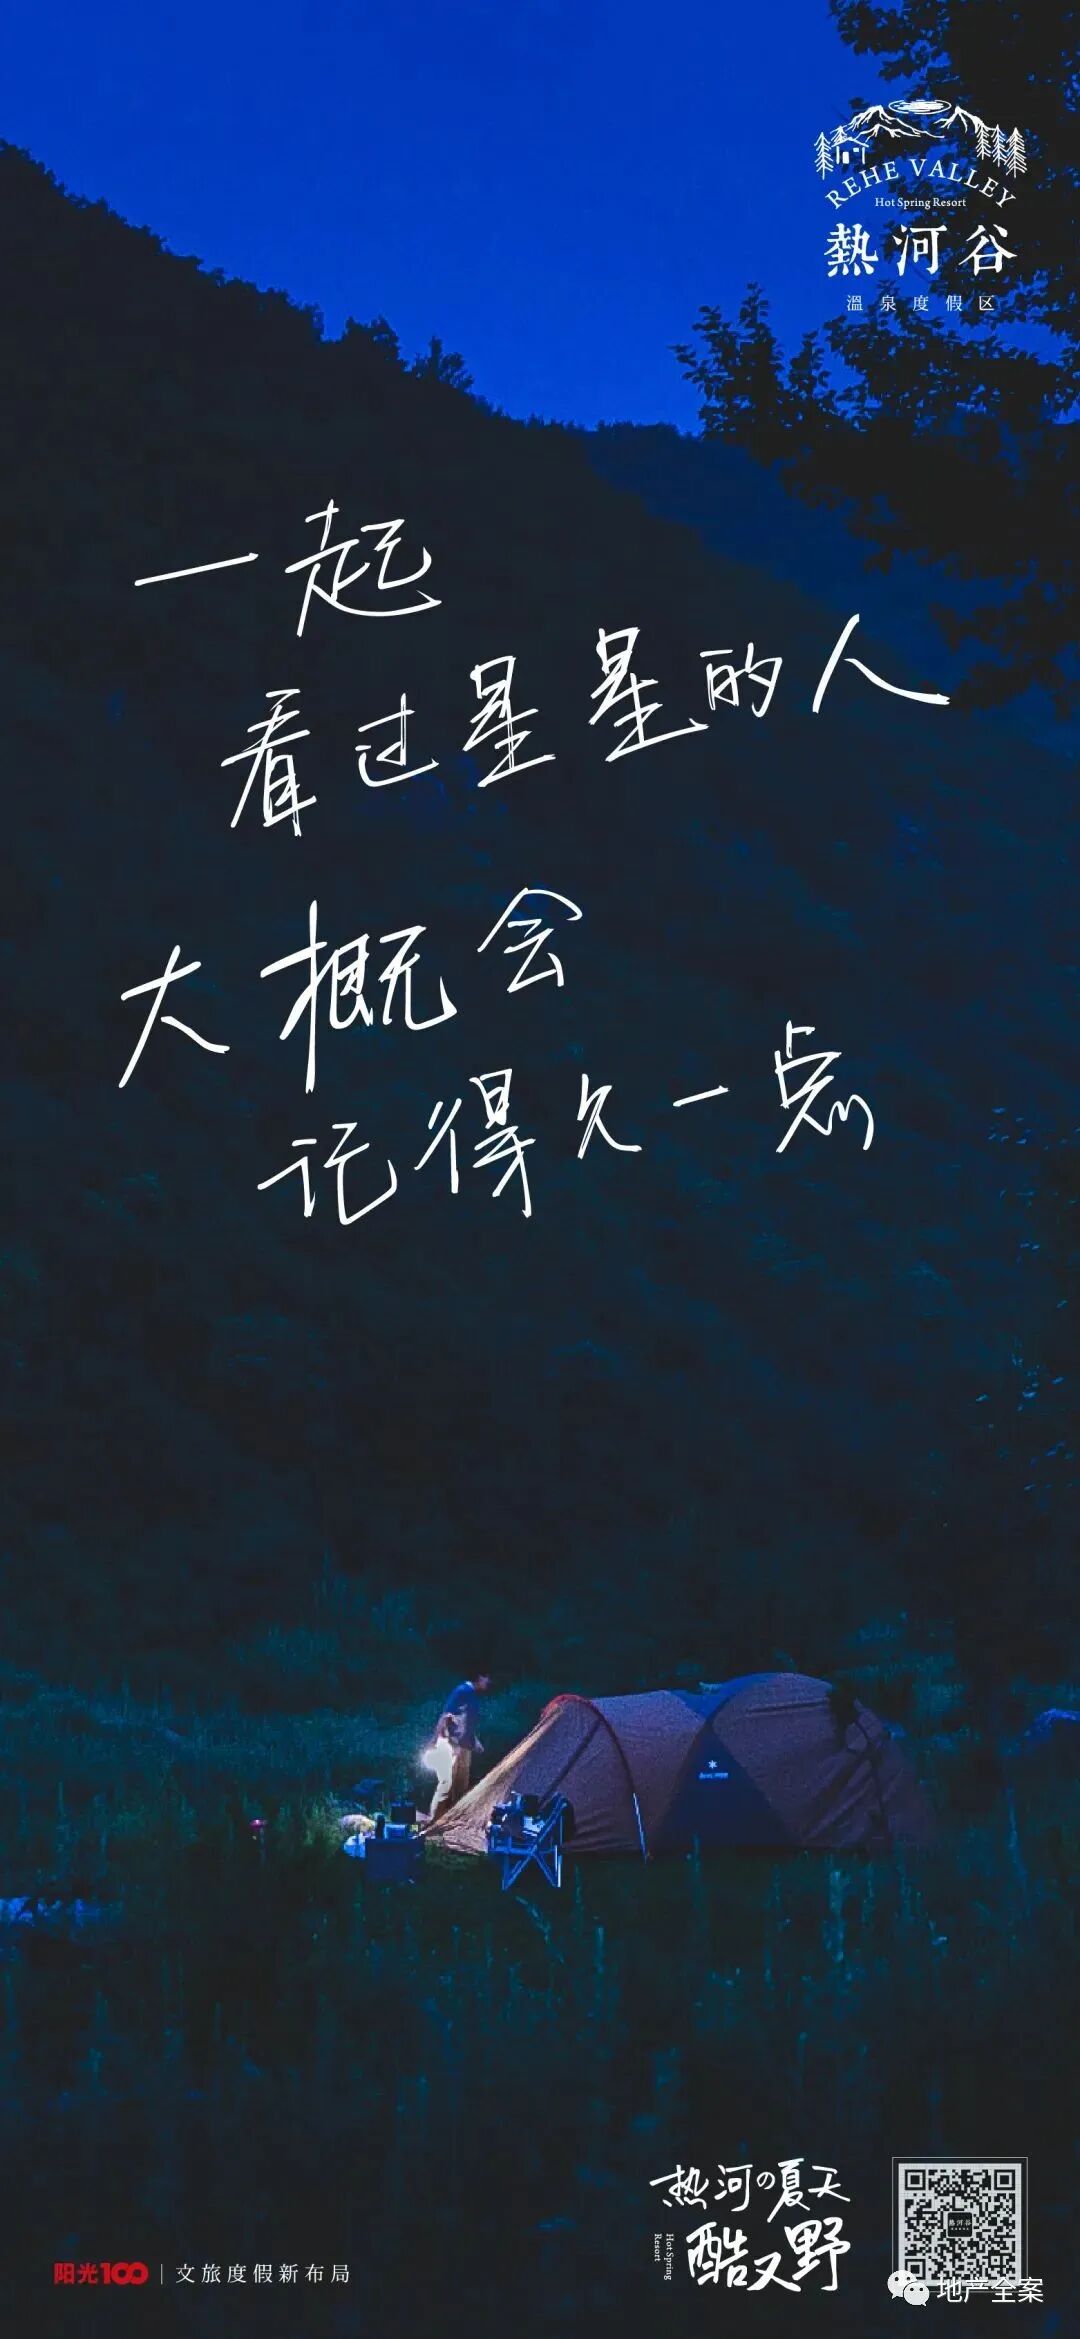 REHE VALLEY
Hot Spring Resort
熱河谷
溫泉度假区
一起
看过星星的人
大概会
记得久一点
热河の夏天
酷又野
Hot Spring
Resort
熱河谷
阳光100 | 文旅度假新布局
地产全案